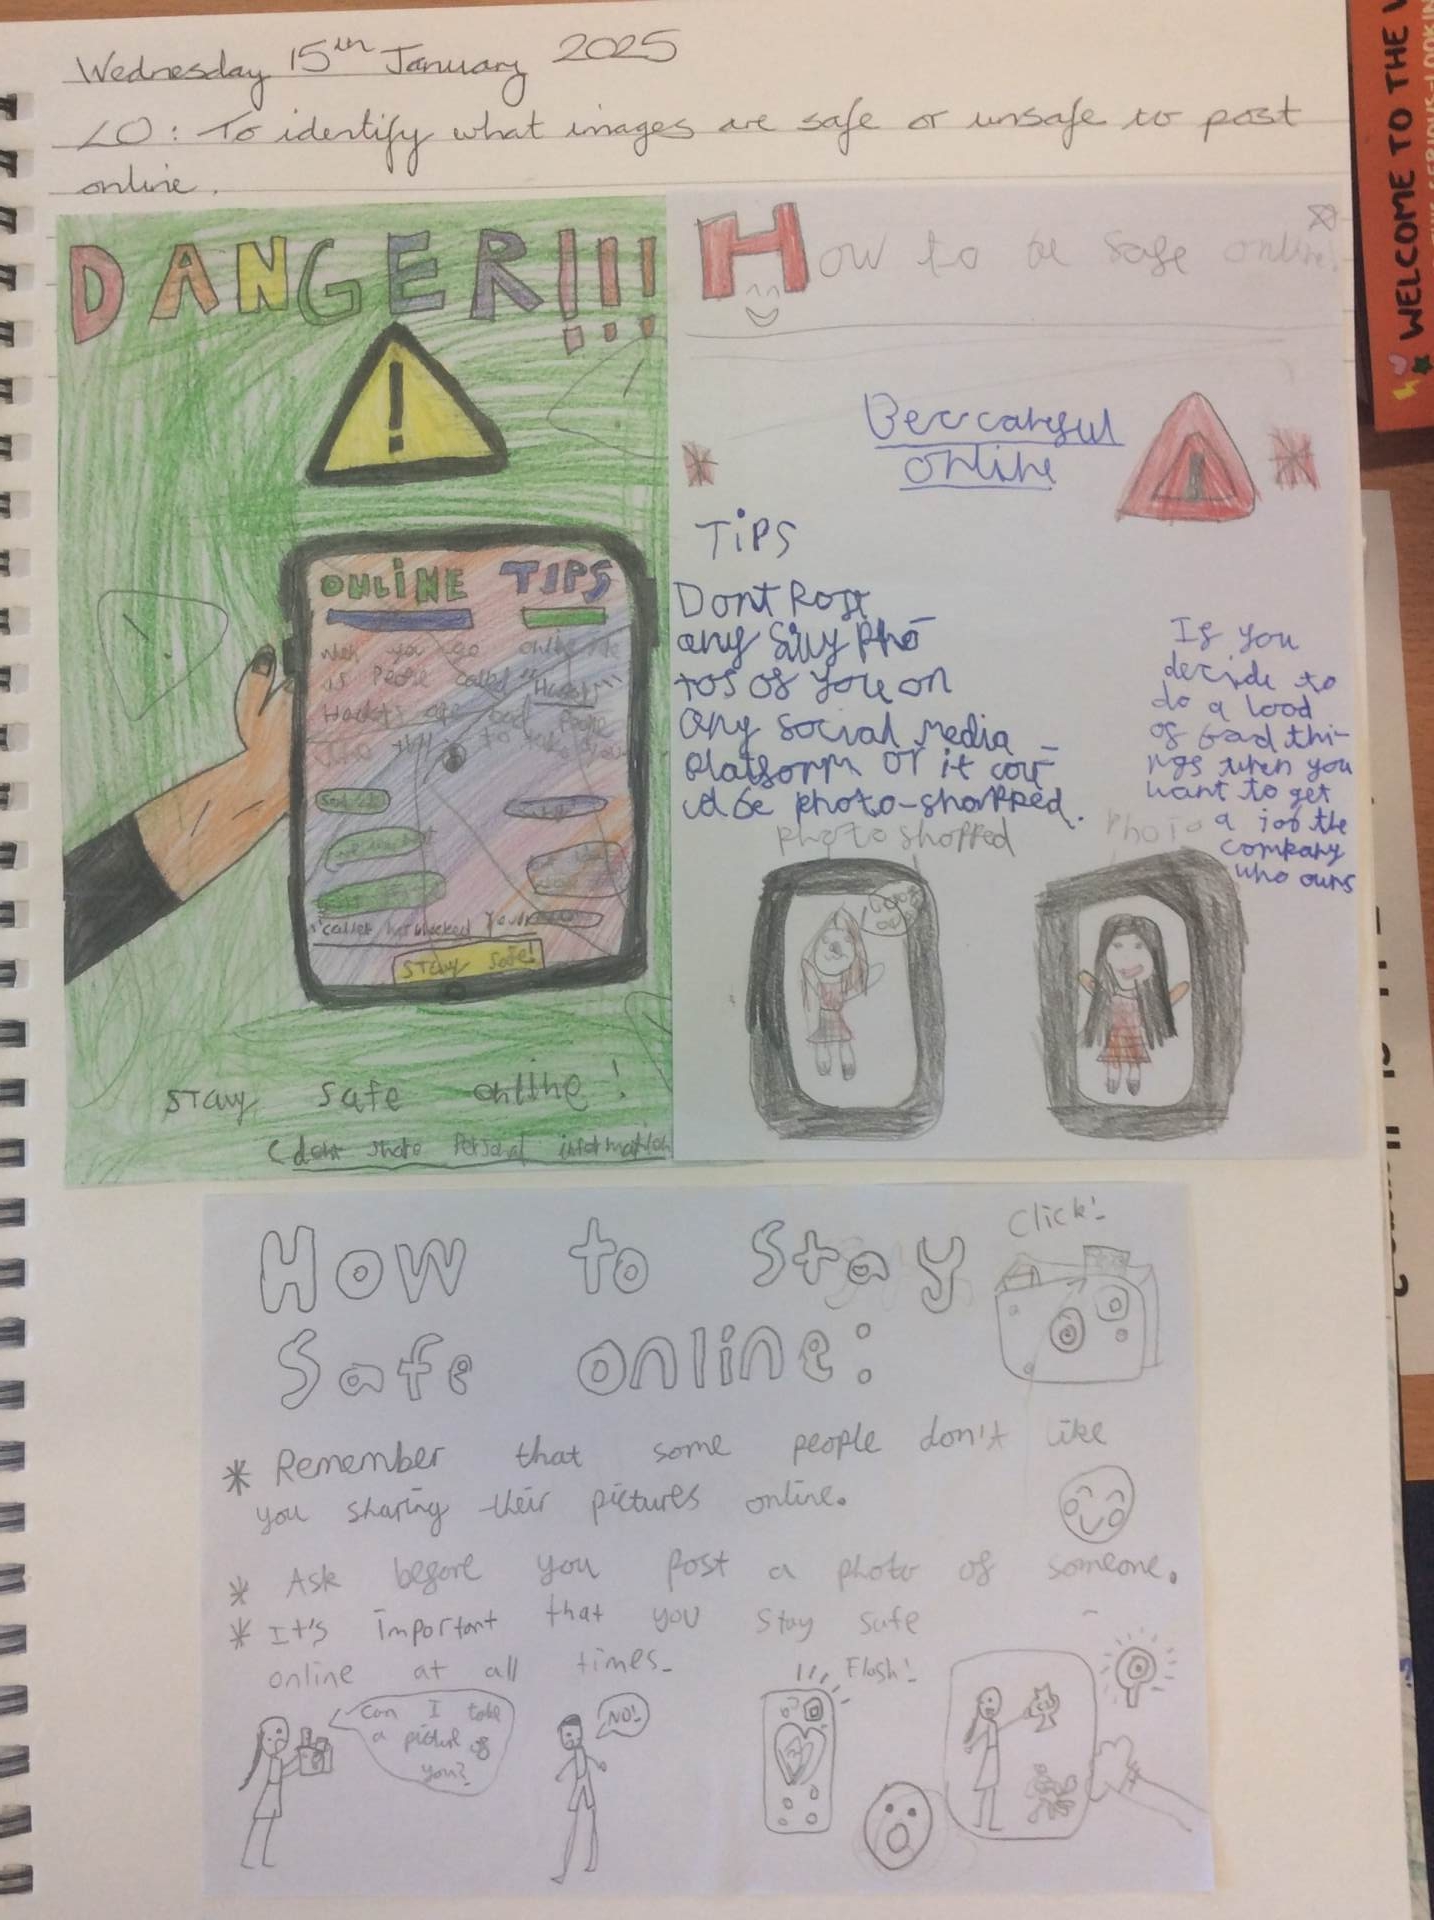 Wednesday 15th January 2025
LO: To identify what images are safe or unsafe to post
online.
DANGER!!!
!
ONLINE TIPS
you go online
is People called "
bad People
"caller has blocked you"
STay safe!
STay safe online!
(dont share Personal information
How to be safe online!
Beccareful
online
TiPS
Dont Post
any Silly Pho-
tos of you on
any social media
platform or it cou-
ld be photo-shopped.
photo shopped
If you
decide to
do a lood
of bad thi-
ngs when you
want to get
a job the
company
who owns
Photo
WELCOME TO THE
SERIOUS-LOOKIN
How to Stay
Safe online:
Click!
* Remember that some people don't like
you sharing their pictures online.
* Ask before you post a photo of someone.
* It's important that you stay safe
online at all times.
Can I take
a pictur of
you?
NO!
Flash!